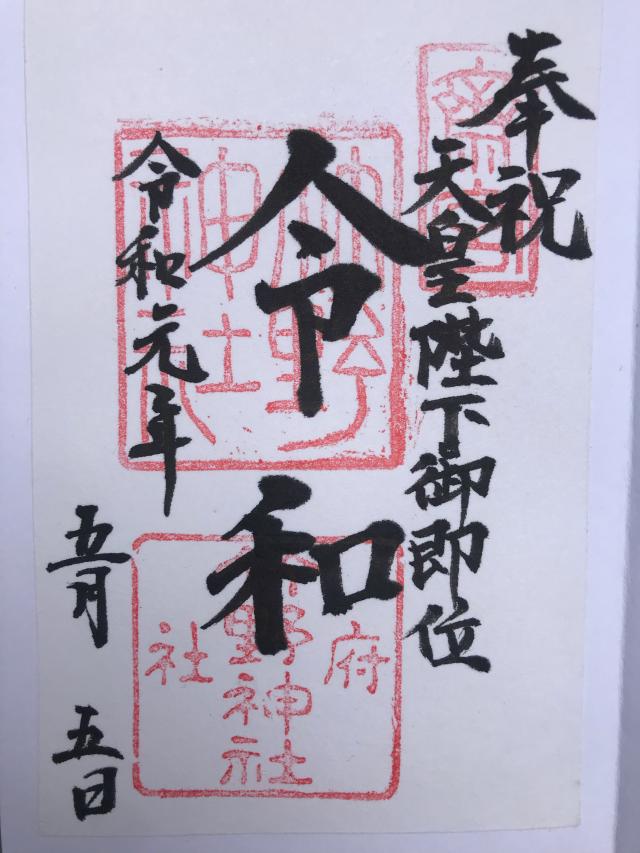 奉祝
天皇陛下御即位
令和
令和元年
五月
五日
府
野神社
社